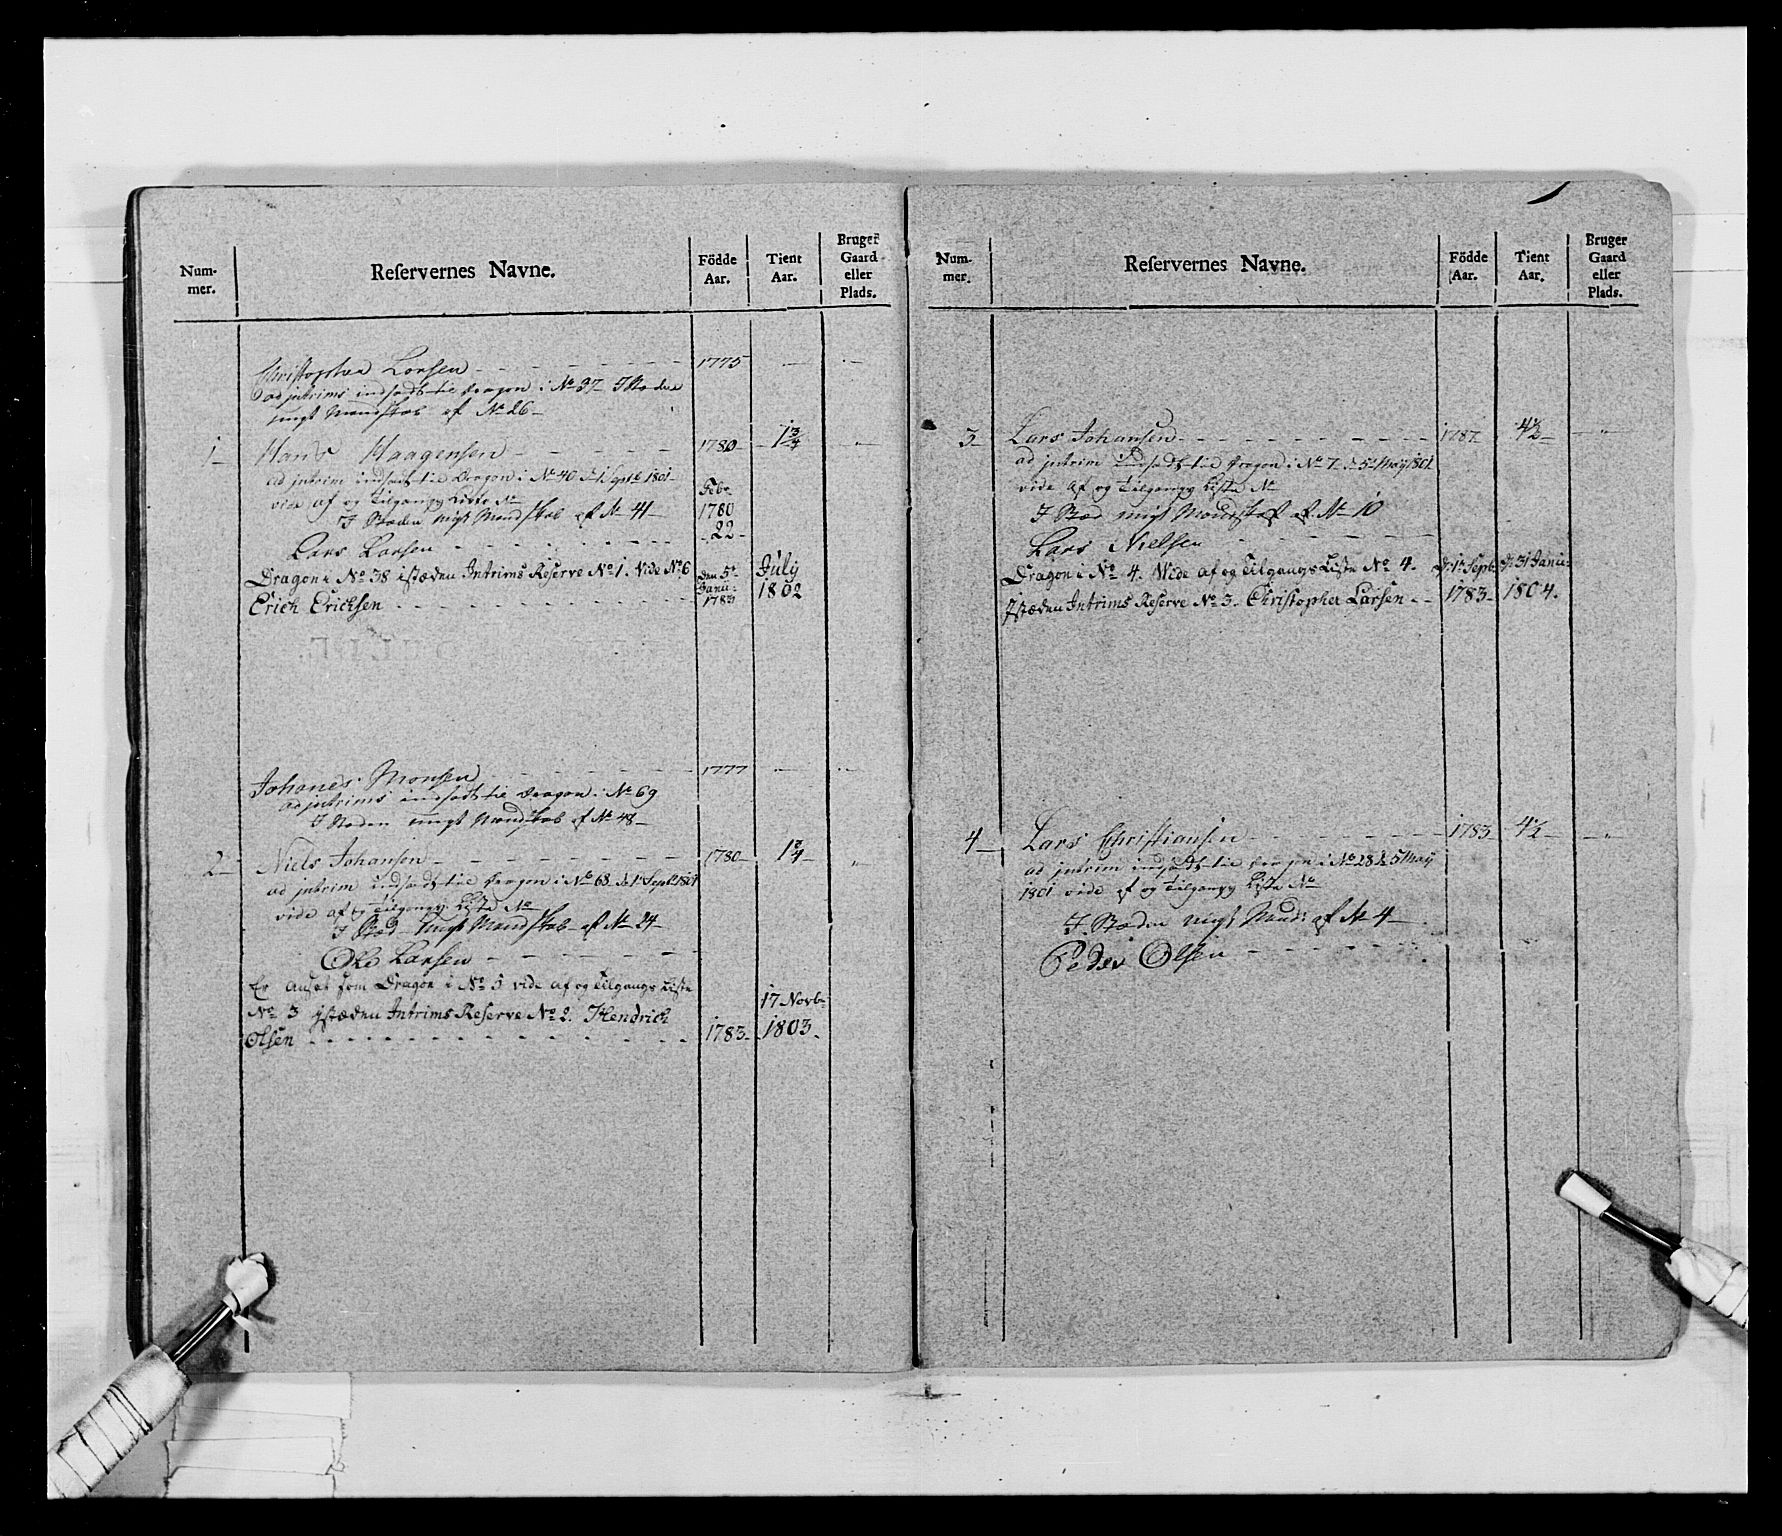 Num-
mer.
Reservernes Navne.
Födde
Aar.
Tient
Aar.
Bruger
Gaard
eller
Plads.
Christopher Larsen - - - - 1775 - -
ad jntrims indsadt til Dragon i No 37 I Staden
nygt Mandskab af No 26 -
1 - Hans Haagensen - - - - 1780 - 1 3/4 - "
ad jntrim indsadt til Dragon i No 40 d. 1 Septb 1801 -
vide af og Tilgangs Liste No
I Staden nygt Mandskab af No 41 -
Lars Larsen - - - - Febr 1780 22 -
Dragon i No 38 istæden Intrims Reserve No 1. Vide No 6
Erich Erichsen - - - - den 5t Janu: 1783 July 1802
Johanes Monsen - - - - 1777 - -
ad jntrims indsadt til Dragon i No 69
I Staden nygt Mandskab af No 48 -
2 - Niels Johansen - - - - 1780 - 1 3/4 - "
ad jntrim indsadt til Dragon i No 68 d. 1 Septb 1801
vide af og Tilgangs Liste No
I Sted nygt Mandskab af No 24 -
Ole Larsen - - - -
Er ansat som Dragon i No 5 vide af og Tilgangs Liste
No 3 jstæden Intrims Reserve No 2. Hendrich
Olsen - - - - 1783 - 17 Novbr 1803.
Num-
mer.
Reservernes Navne.
Födde
Aar.
Tient
Aar.
Bruger
Gaard
eller
Plads.
3 - Lars Johansen - - - - 1787 4 1/2 - - "
ad jntrim indsadt til Dragon i No 7. d. 5t May 1801
vide af og Tilgangs Liste No
I Sted nygt Mandskab af No 10
Lars Nielsen - - - -
Dragon i No 4. Vide af og Tilgangs Liste No 4. d. 1t Septb: d. 31 Janu:
Jstæden Intrims Reserve No 3. Christopher Larsen - - 1783 - 1804.
4 - Lars Christiansen - - - - 1783 4 1/2 - - "
ad jntrim indsadt til Dragon i No 28 d. 5 May
1801 vide af og Tilgangs Liste No
I Staden nygt Mand: af No 4 -
Peder Olsen - - - -